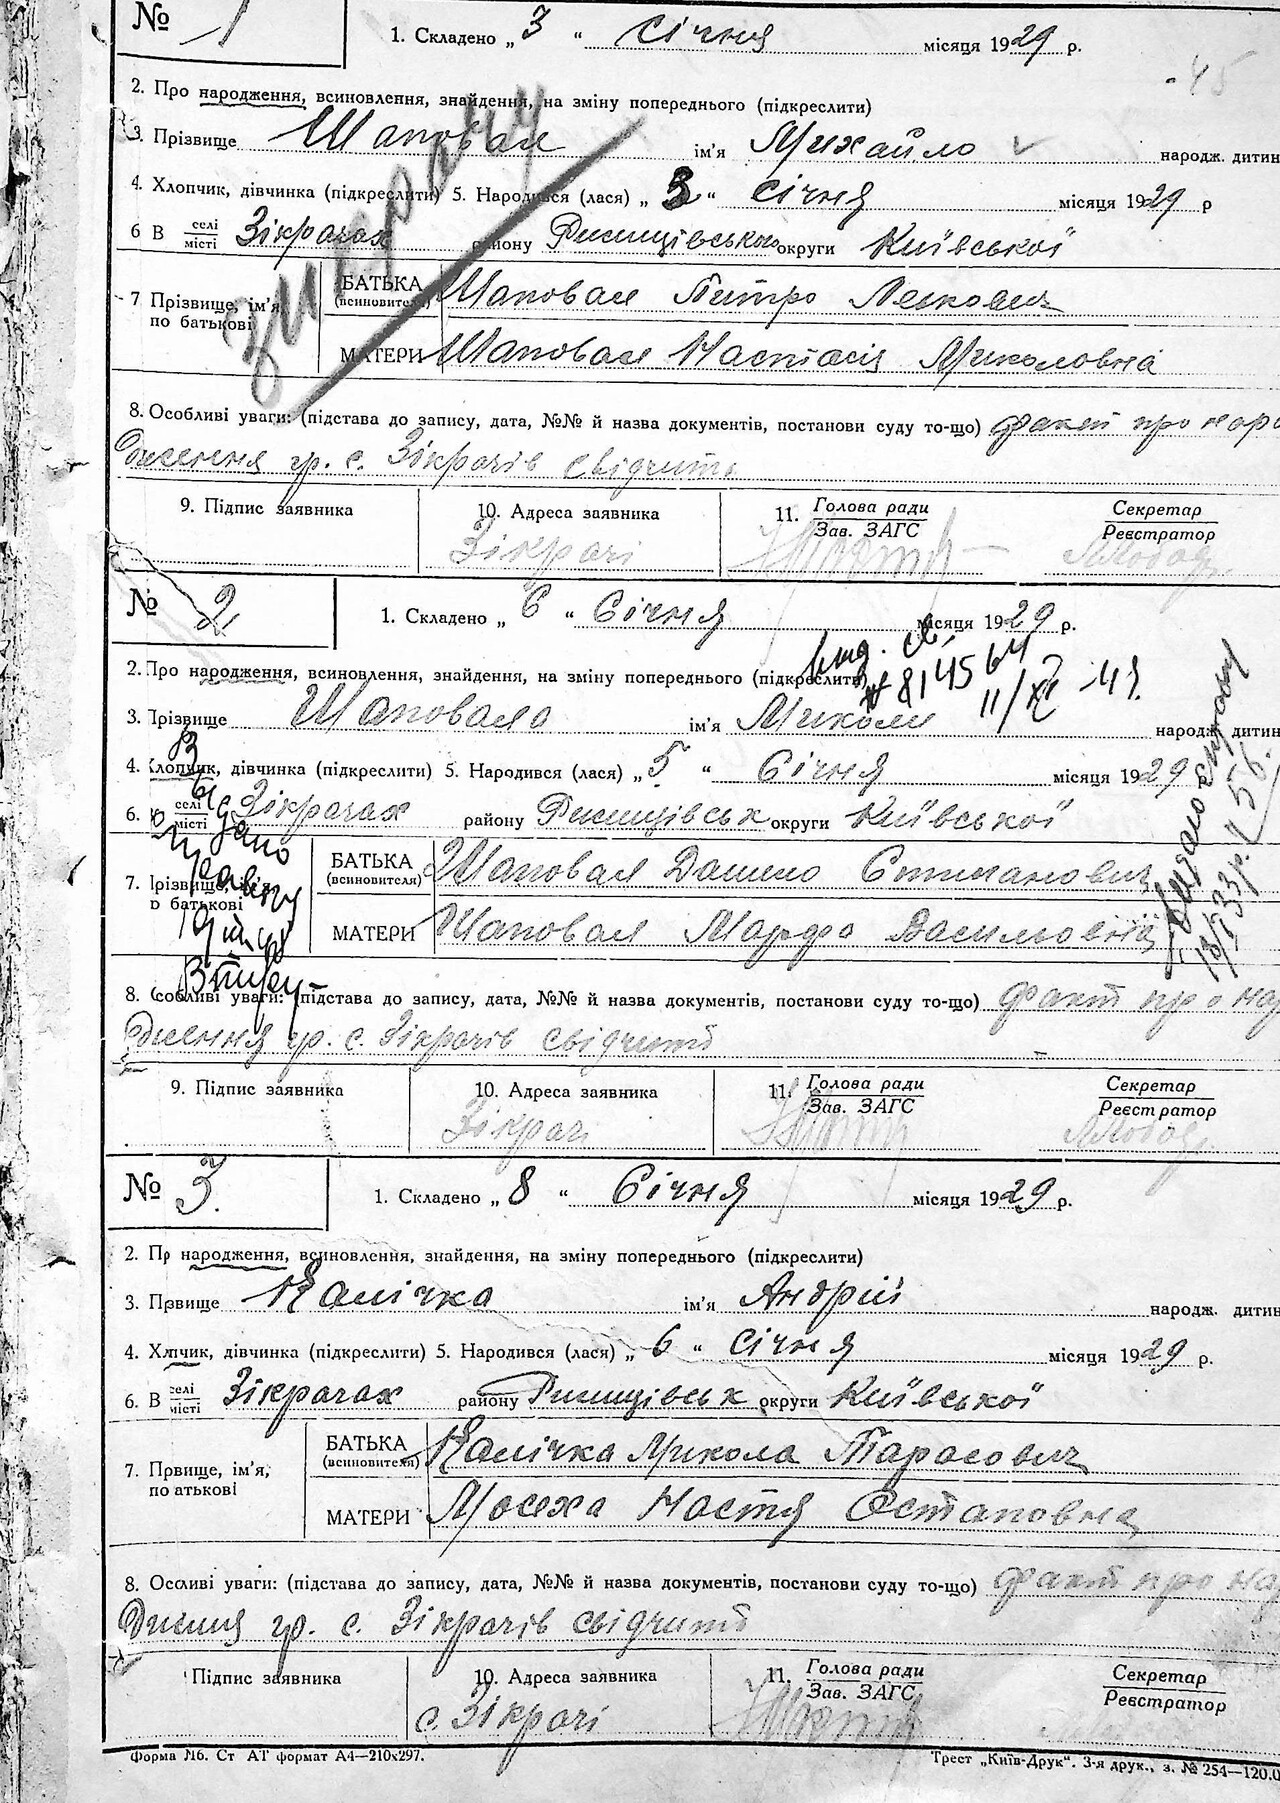 № 1
1. Складено „ 3 “ Січня місяця 1929 р.
45
2. Про народження, всиновлення, знайдення, на зміну попереднього (підкреслити)
3. Прізвище Шаповал ім'я Михайло народж. дитин
4. Хлопчик, дівчинка (підкреслити) 5. Народився (лася) „ 3 “ січня місяця 1929 р
6 В селі/місті Зікрачах району Ржищівського округи Київської
7 Прізвище, ім'я по батькові
БАТЬКА (всиновителя) Шаповал Петро
МАТЕРИ Шаповал Настасія Миколовна
8. Особливі уваги: (підстава до запису, дата, №№ й назва документів, постанови суду то-що) факт про наро
дження гр. с. Зікрачів свідчить
9. Підпис заявника 10. Адреса заявника 11. Голова ради Секретар
Зав. ЗАГС Реєстратор
Зікрачі
№ 2
1. Складено „ 6 “ Січня місяця 1929 р.
2. Про народження, всиновлення, знайдення, на зміну попереднього (підкреслити)
вид. св.
№ 814564
3. Прізвище Шаповала ім'я Миколи народж. дитин
4. Хлопчик, дівчинка (підкреслити) 5. Народився (лася) „ 5 “ Січня місяця 1929
6. В селі/місті Зікрачах району Ржищівськ округи Київської
Видано
7. Прізвище, ім'я по батькові
БАТЬКА (всиновителя) Шаповал Данило Степанович
МАТЕРИ Шаповал Марфа Васильовна
8. Особливі уваги: (підстава до запису, дата, №№ й назва документів, постанови суду то-що) факт про на
дження гр. с. Зікрачів свідчить
9. Підпис заявника 10. Адреса заявника 11. Голова ради Секретар
Зав. ЗАГС Реєстратор
Зікрачі
№ 3.
1. Складено „ 8 “ Січня місяця 1929 р.
2. Пр народження, всиновлення, знайдення, на зміну попереднього (підкреслити)
3. Првище Калічка ім'я Андрій народж. дитин
4. Хлпчик, дівчинка (підкреслити) 5. Народився (лася) „ 6 “ січня місяця 1929 р.
6. В селі/місті Зікрачах району Ржищівськ округи Київської
7. Првище, ім'я, по атькові
БАТЬКА (всиновителя) Калічка Микола Тарасович
МАТЕРИ Мосеха Настя Остаповна
8. Осливі уваги: (підстава до запису, дата, №№ й назва документів, постанови суду то-що) факт про на
гр. с. Зікрачів свідчить
Підпис заявника 10. Адреса заявника 11. Голова ради Секретар
Зав. ЗАГС Реєстратор
с. Зікрачі
Форма №6. Ст АТ формат А4—210x297. Трест „Київ-Друк“. 3-я друк., з. № 254—120.0